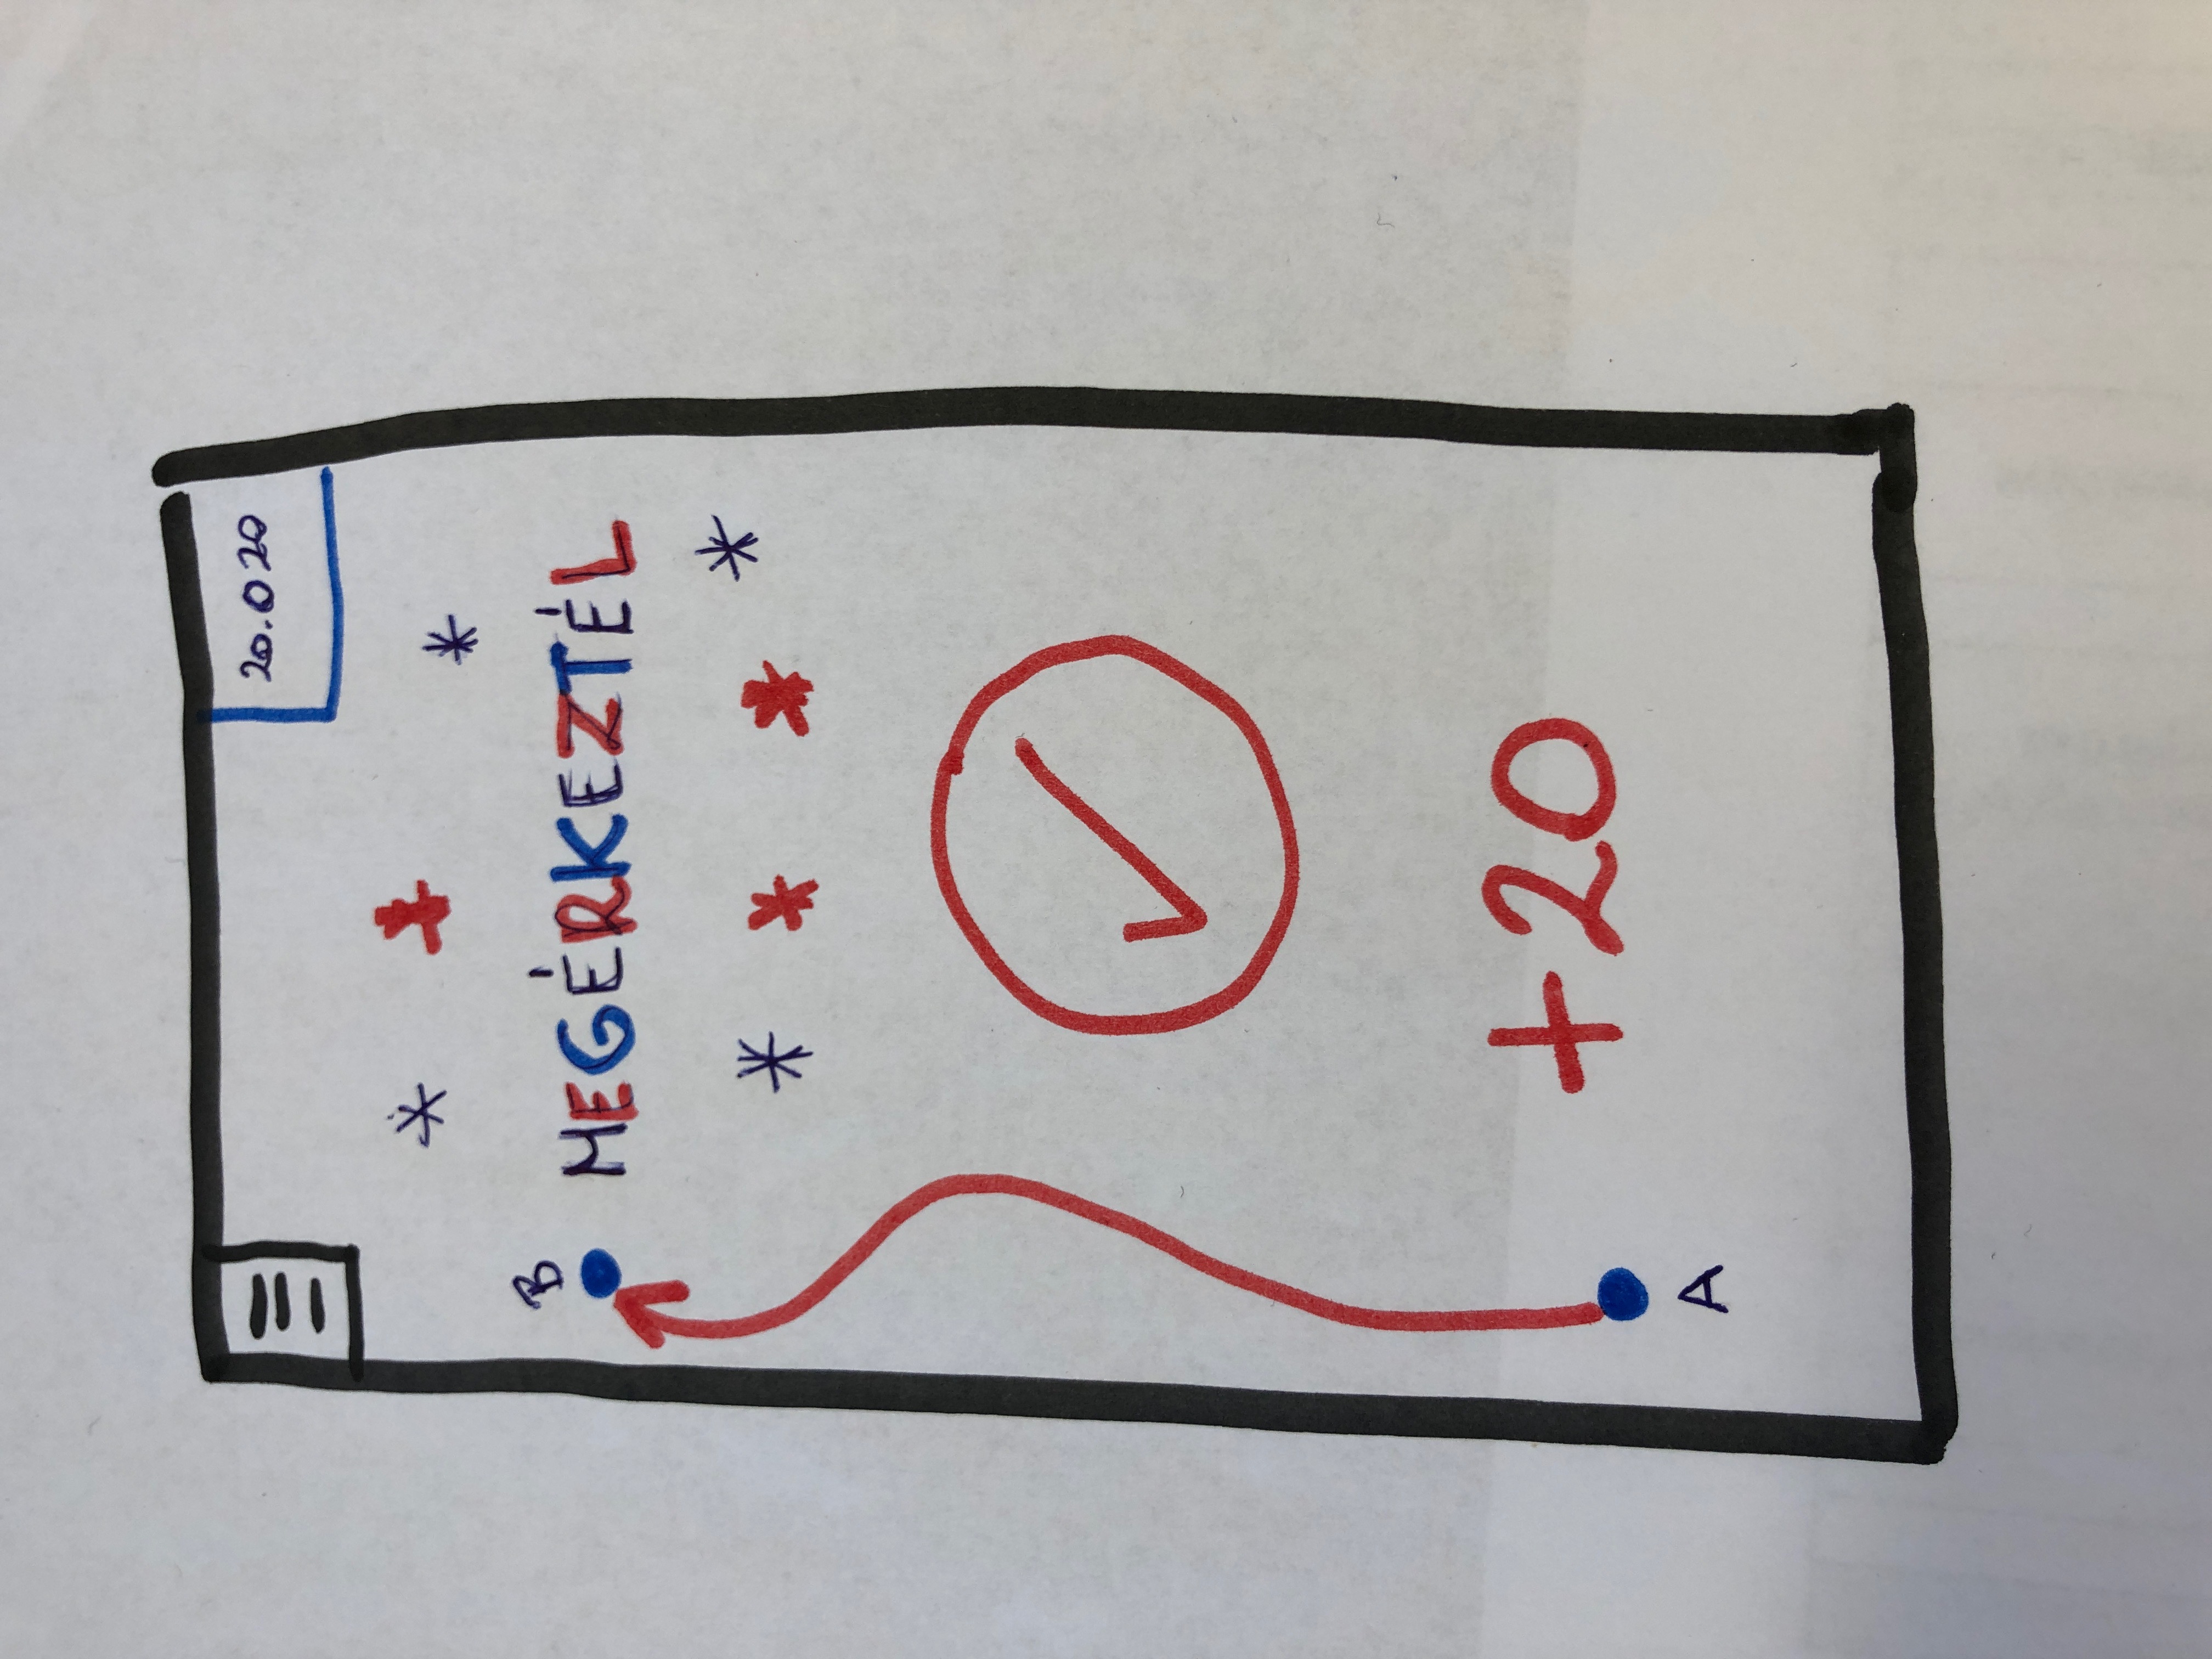 20.020
B
MEGÉRKEZTÉL
+20
A